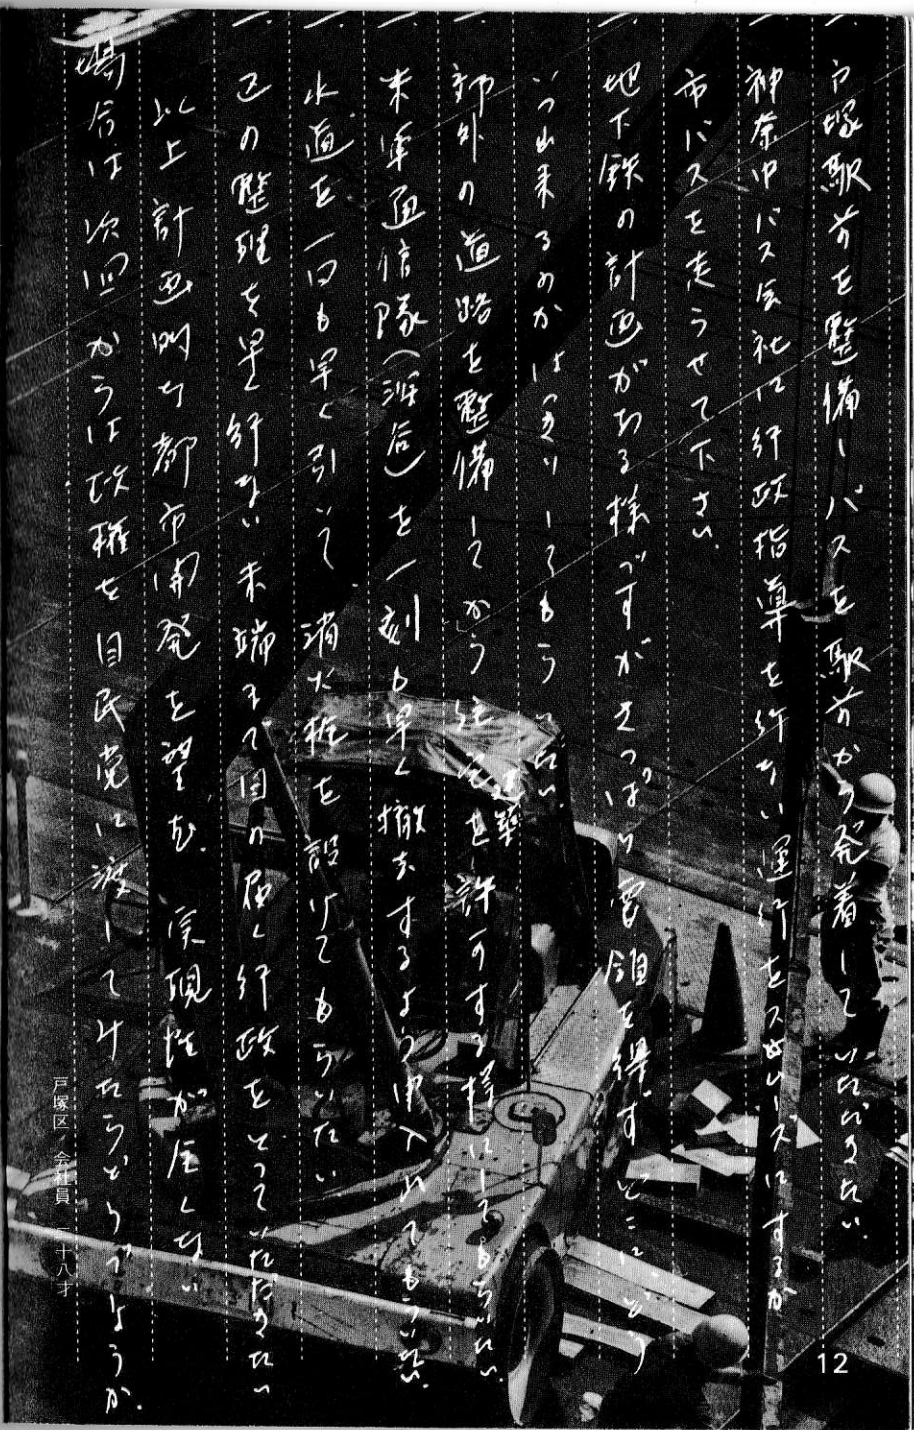 一、戸塚駅前を整備しバスを駅前から発着していただきたい。
一、神奈中バス会社に行政指導を行ない運行をスムーズにするか
市バスを走らせて下さい。
一、地下鉄の計画がある様ですがさっぱり要領を得ずどこに、どう
いつ出来るのかはっきりしてもらいたい。
一、郊外の道路を整備してから住宅建築を許可する様にしてもらいたい。
一、米軍通信隊(深谷)を一刻も早く撤去するよう申入れてもらいたい。
一、水道を一日も早く引いて、消火栓を設けてもらいたい
一、区の整理を早く行ない末端まで目の届く行政をとっていただきたい
以上計画的な都市開発を望む、実現性が全くない
場合は次回からは政権を自民党に渡してみたらどうでしょうか。
戸塚区 会社員 二十八才
12